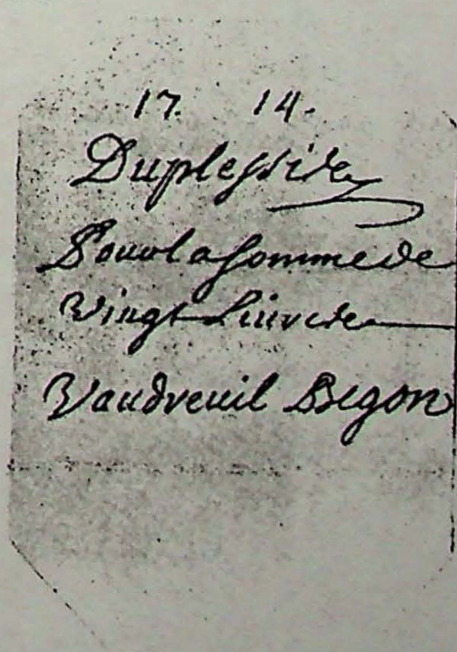 17. 14.
Duplessis
Pour la somme de
Vingt Livres
Vaudreuil Begon